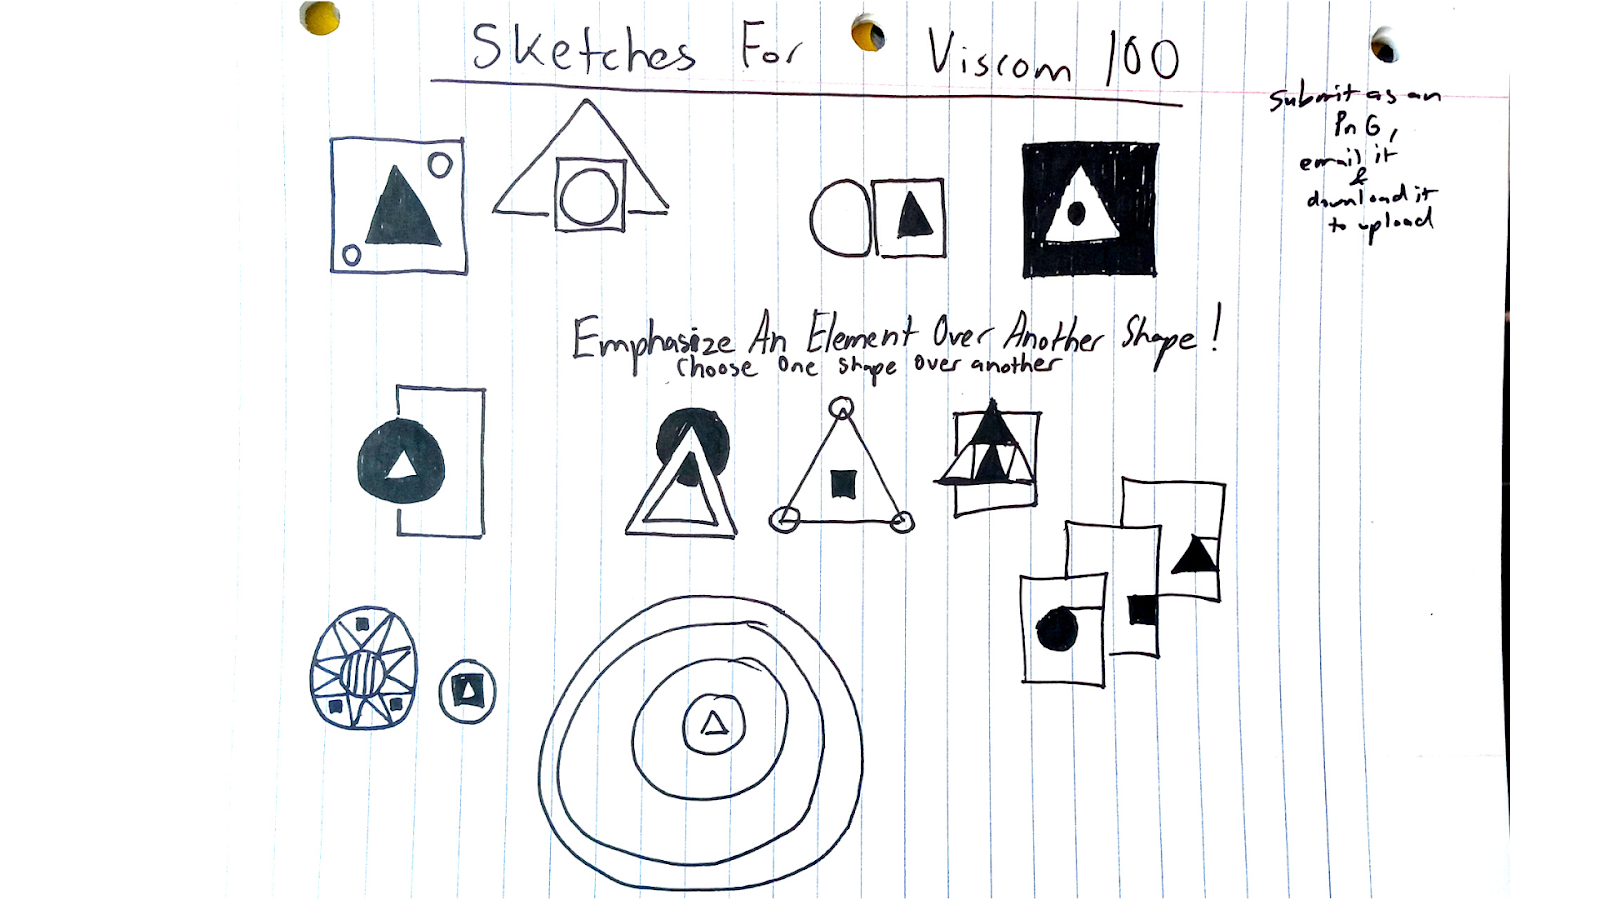 Sketches For Viscom 100
Submit as an
PnG,
email it
&
download it
to upload
Emphasize An Element Over Another Shape!
Choose One Shape Over another